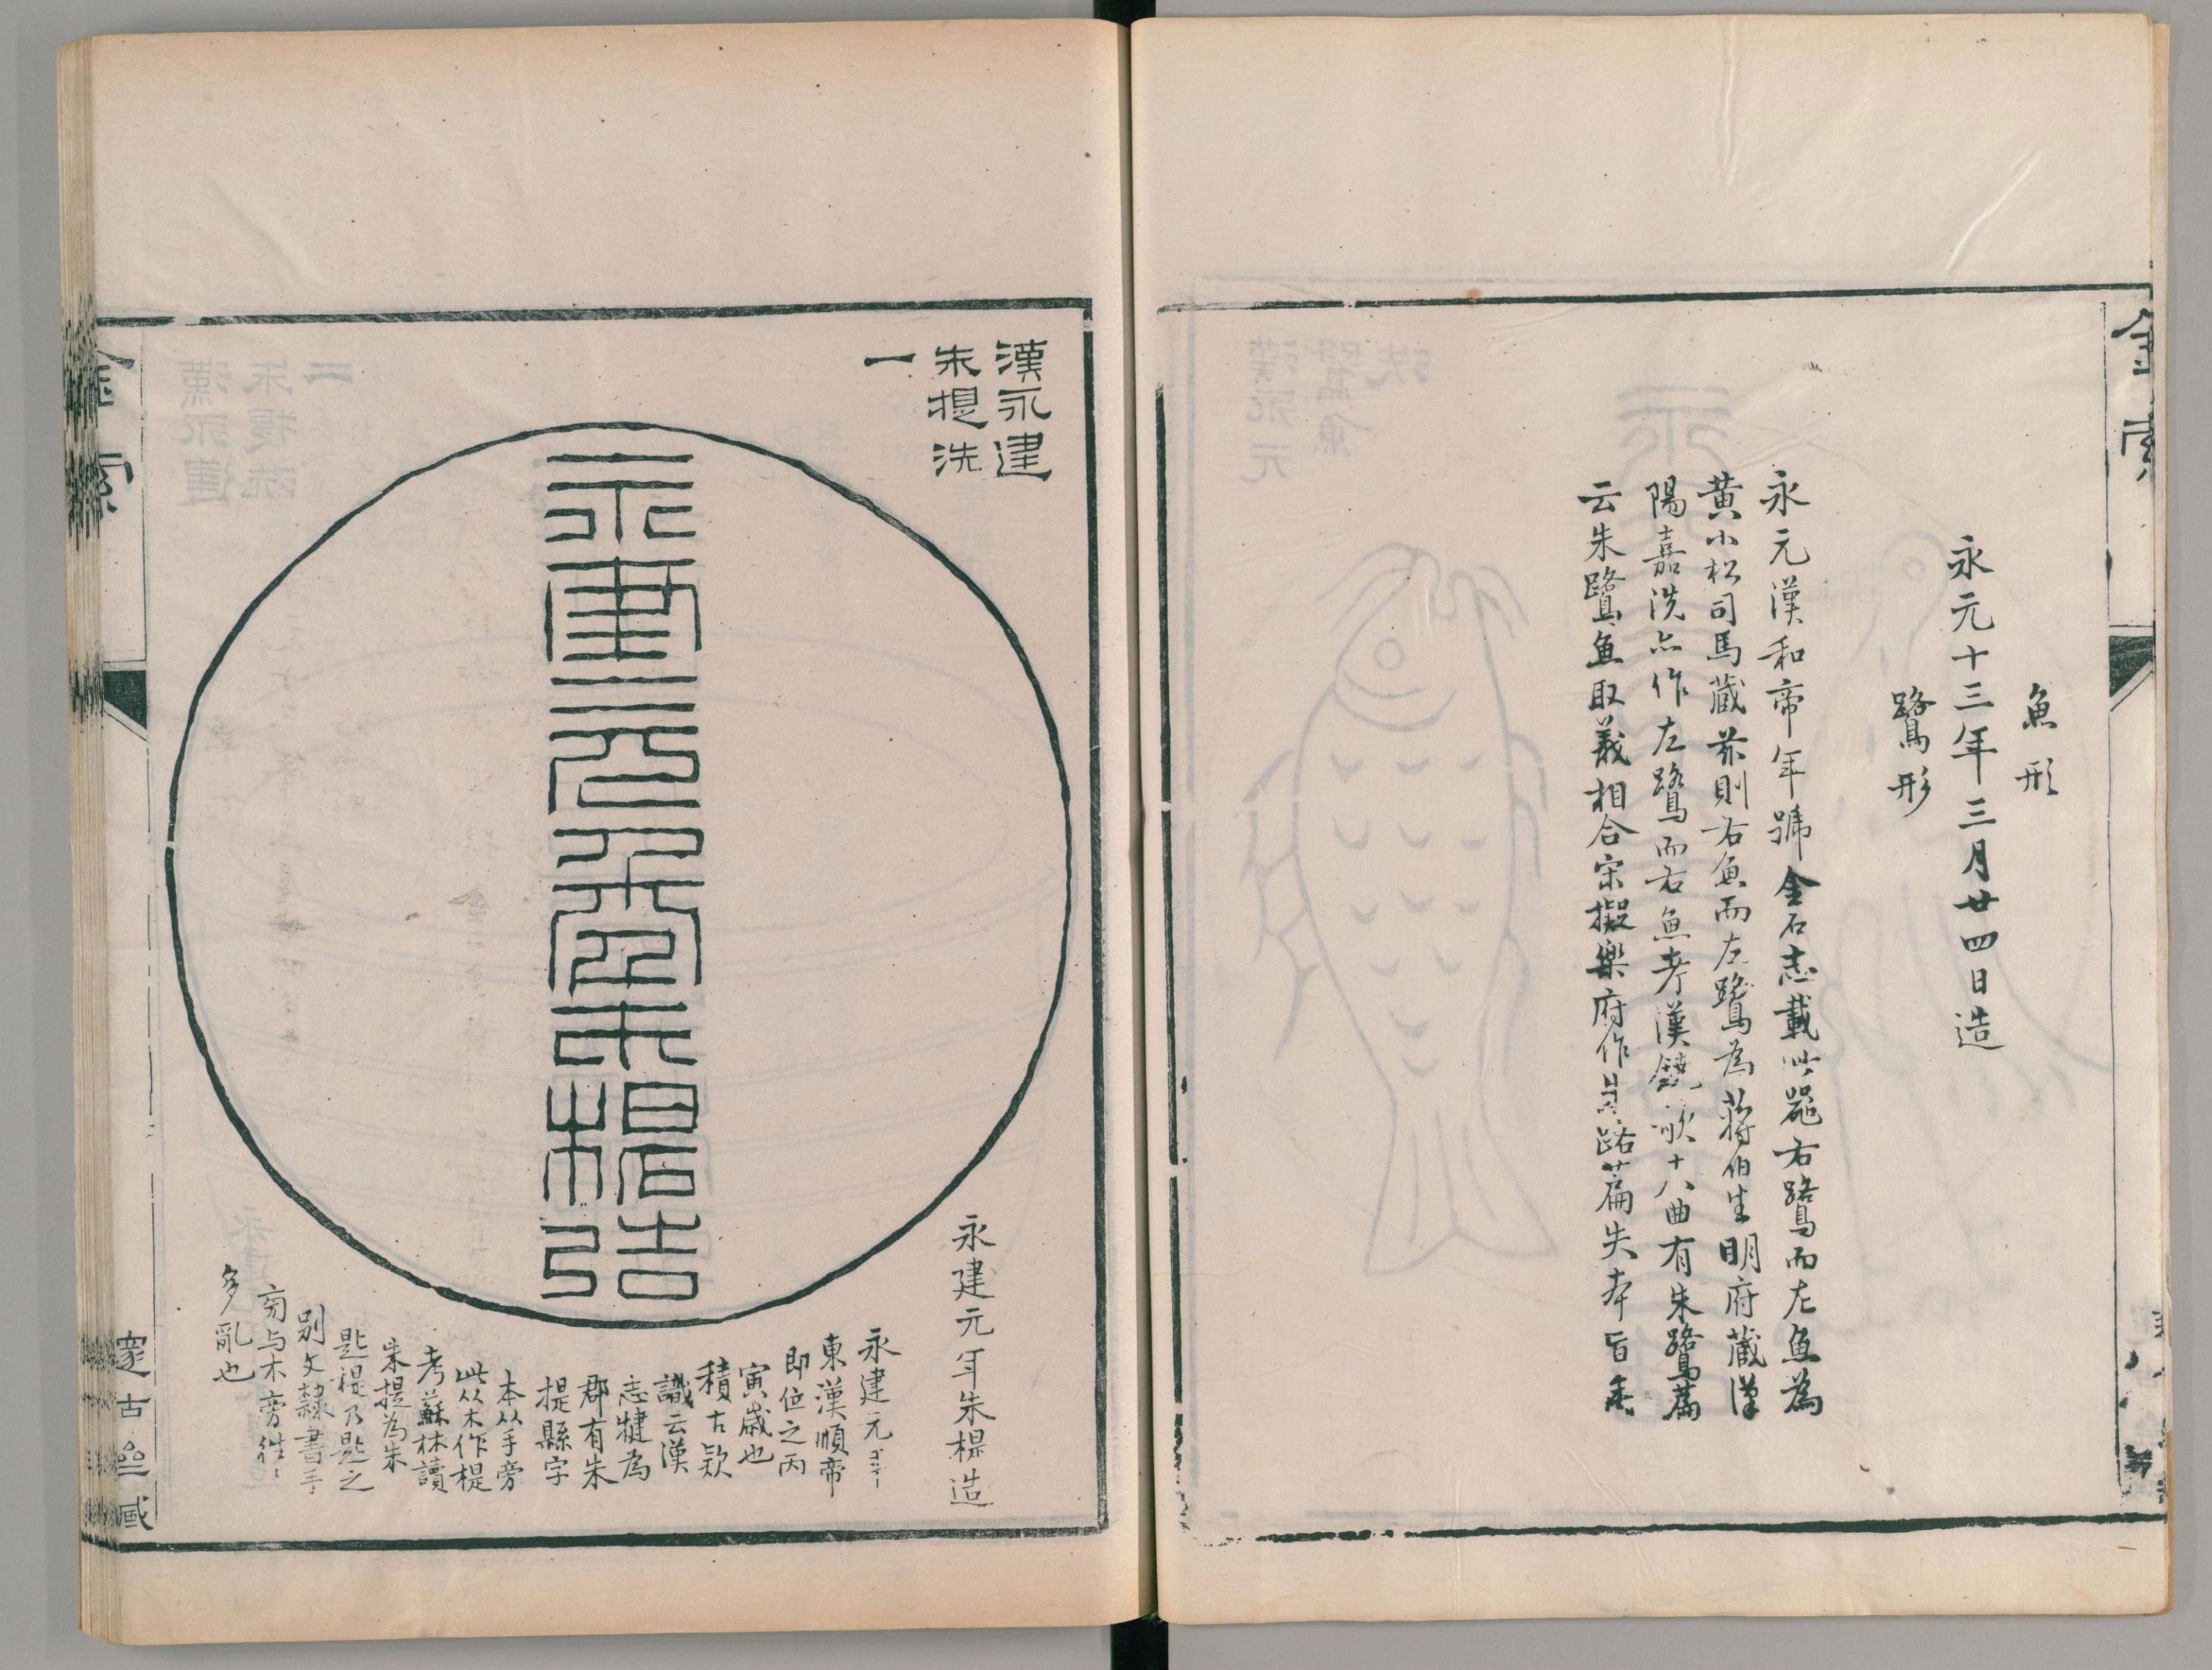 金索
魚形
永元十三年三月廿四日造
鷺形
永元漢和帝年號金石志載此器右鷺而左魚為
黄小松司馬藏茶則右魚而左鷺為蔣伯生明府藏漢
陽嘉洗亦作左鷺而右魚考漢鐃歌十八曲有朱鷺篇
云朱鷺魚取義相合宋擬樂府作朱路篇失本旨矣
漢永建
朱提洗
一
永建元年朱楒造
永建元年朱楒造
永建元年
東漢順帝
即位之丙
寅歲也
積古款
識云漢
志犍為
郡有朱
提縣字
本从手旁
此从木作楒
考蘇林讀
朱提為朱
匙禔乃匙之
別文隸書手
旁与木旁往〻
多亂也
金索
邃古亝藏